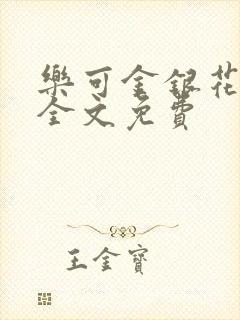 樂可金銀花
全文免費
王金寶